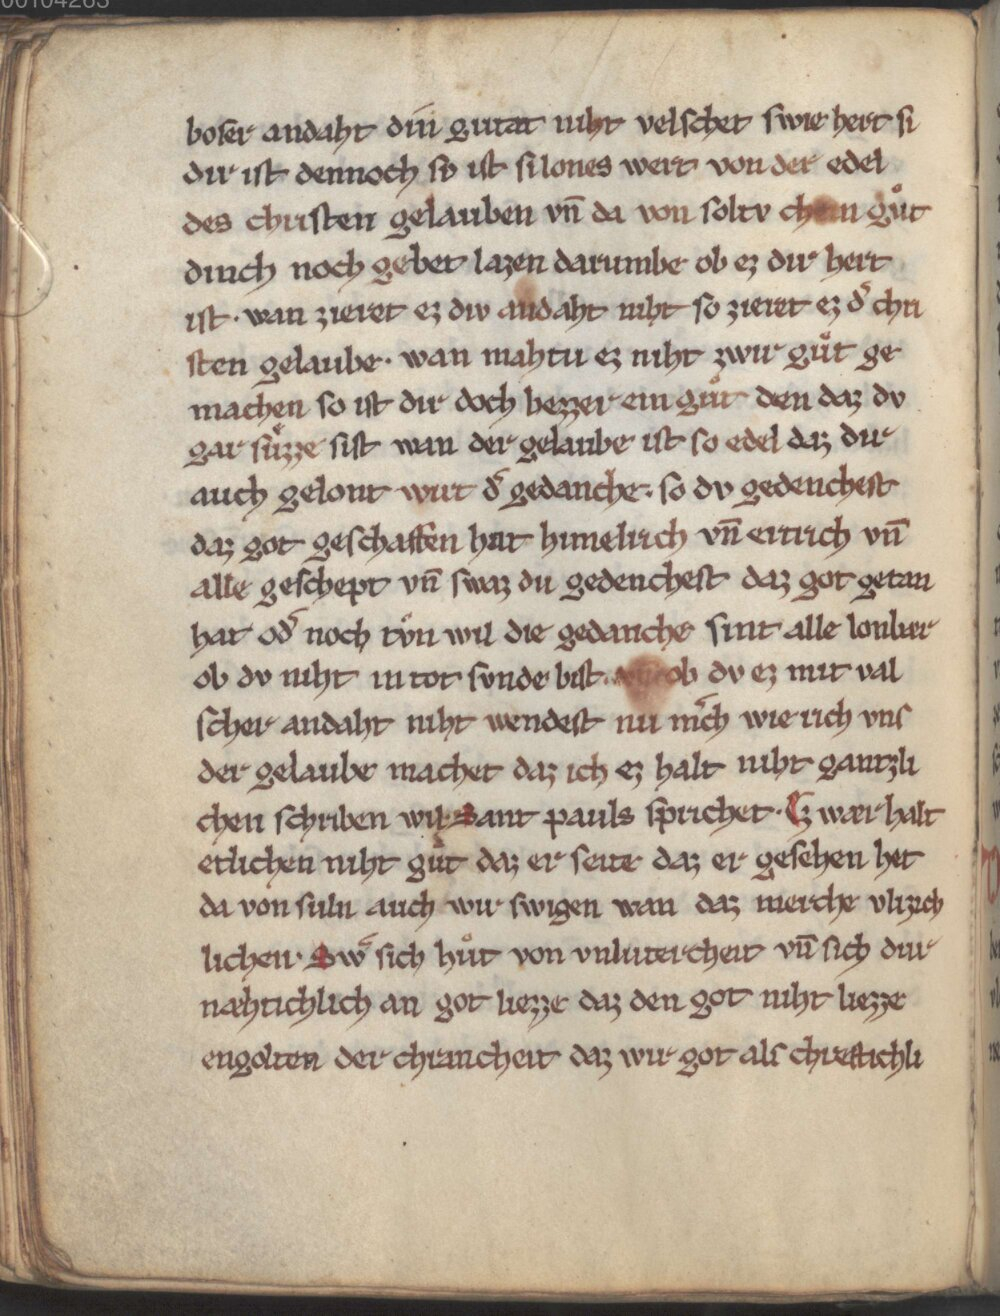 00104263
boser andaht diu gutat niht velschet swie hert si
dir ist dennoch so ist si lones wert von der edel
des christen gelauben vn̄ da von soltv chain guͦt
dinch noch gebet lazen darumbe ob ez dir hert
ist · wan zieret ez div andaht niht so zieret ez d͛ chri
sten gelaube · wan mahtu ez niht zwir guͦt ge
machen so ist dir doch bezzer ein guͦt den daz dv
gar suͦzze sist wan der gelaube ist so edel daz dir
auch gelont wirt d͛ gedanche · so dv gedenchest
daz got geschaffen hat himelrich vn̄ ertrich vn̄
alle geschept vn̄ swaz du gedenchest daz got getan
hat od͛ noch tvͦn wil die gedanche sint alle lonber
ob dv niht in tot svnde bist vn̄ ob dv ez mit val
scher andaht niht wendest nu m͛ch wie rich vns
der gelaube machet daz ich ez halt niht gantzli
chen schriben wil · Sant pauls sprichet · Ez wær halt
etlichen niht guͦt daz er seite daz er gesehen het
da von suln auch wir swigen wan daz merche vlizich
lichen · Sw͛ sich huͦt von vnlutercheit vn̄ sich dur
næhtichlich an got liezze daz den got niht liezze
engolten der chrancheit daz wir got als chreftichli